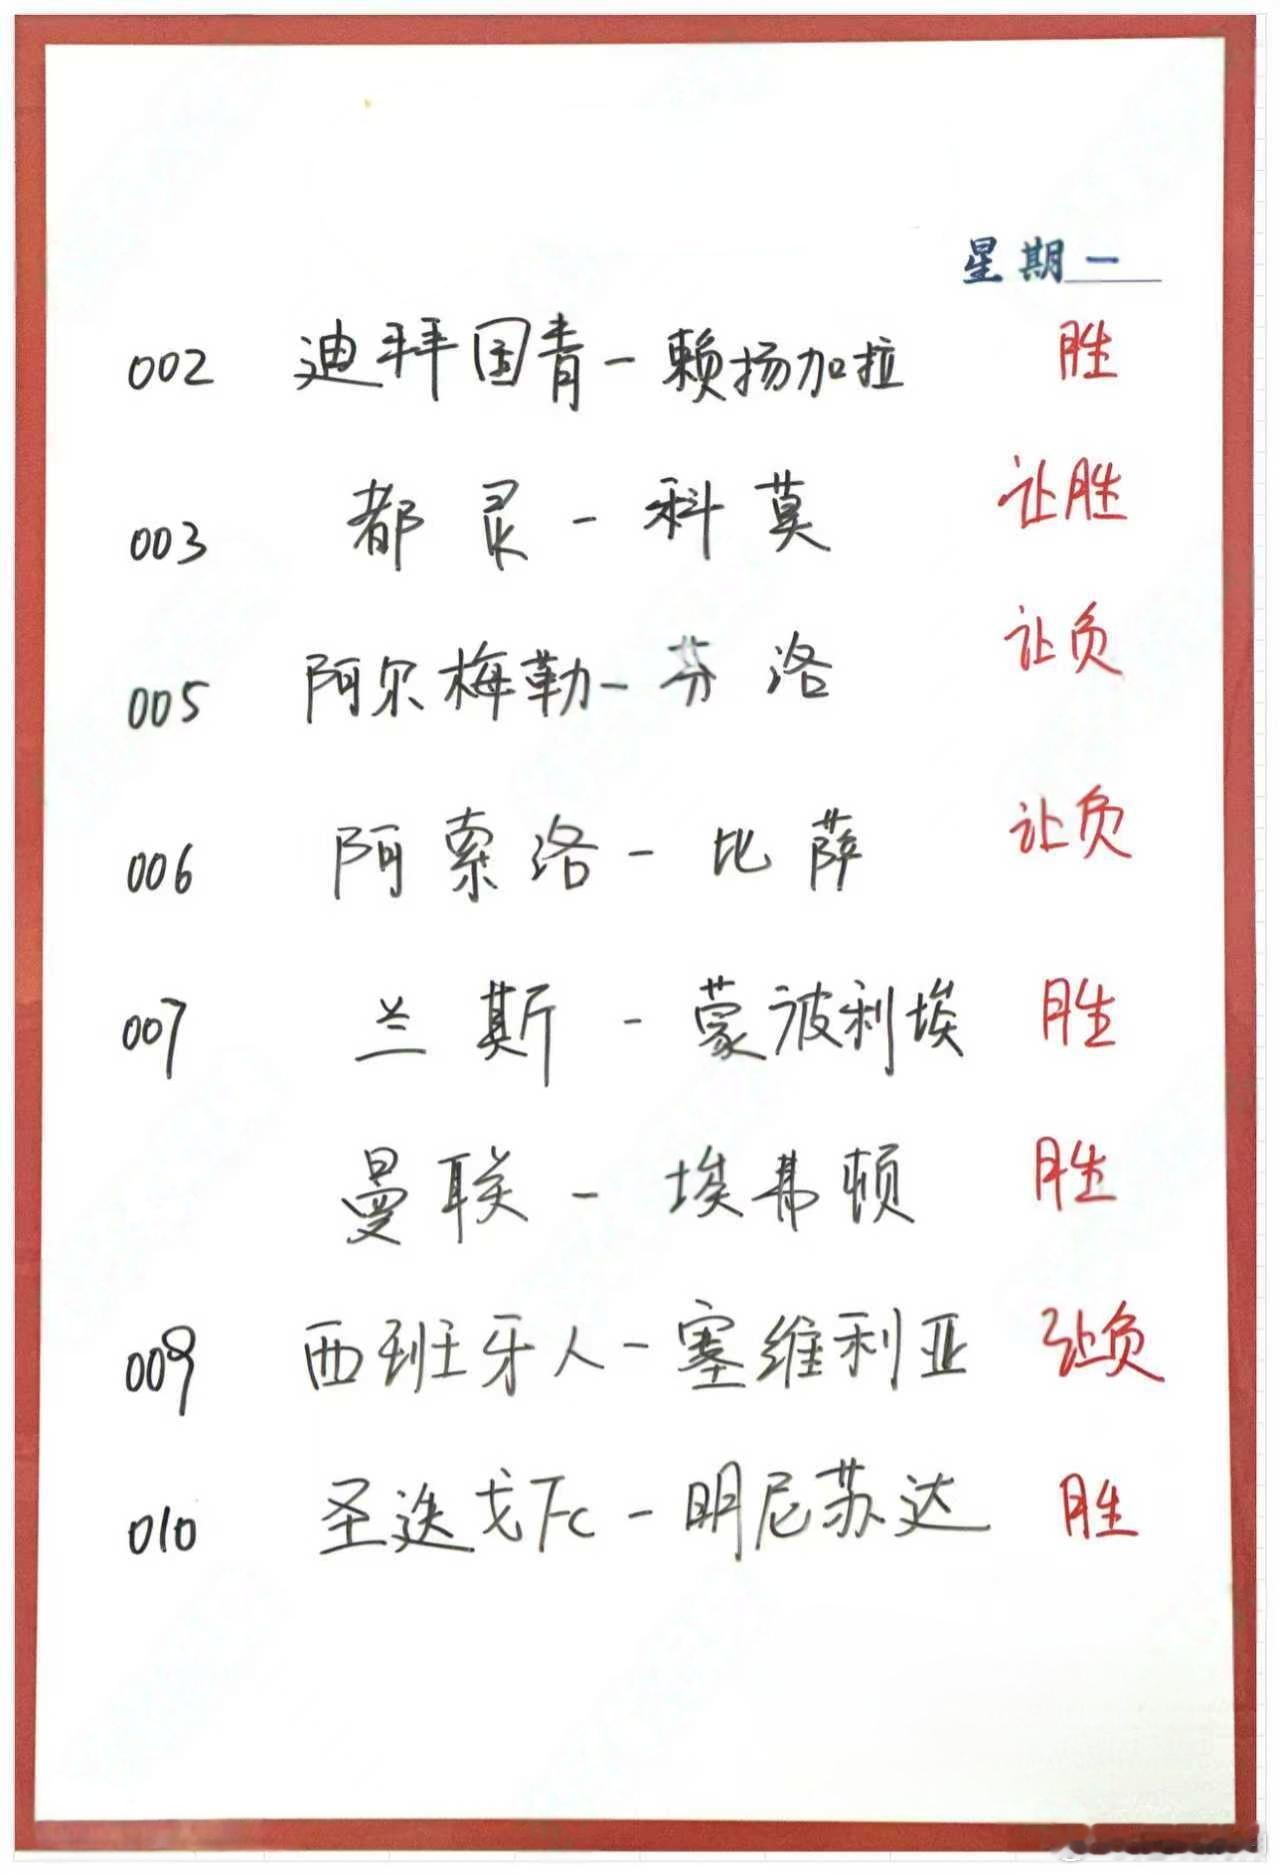 星期一
002 迪拜国青-赖扬加拉 胜
003 都灵-科莫 让胜
005 阿尔梅勒-芬洛 让负
006 阿索洛-比萨 让负
007 兰斯-蒙彼利埃 胜
曼联-埃弗顿 胜
009 西班牙人-塞维利亚 让负
010 圣迭戈Fc-明尼苏达 胜